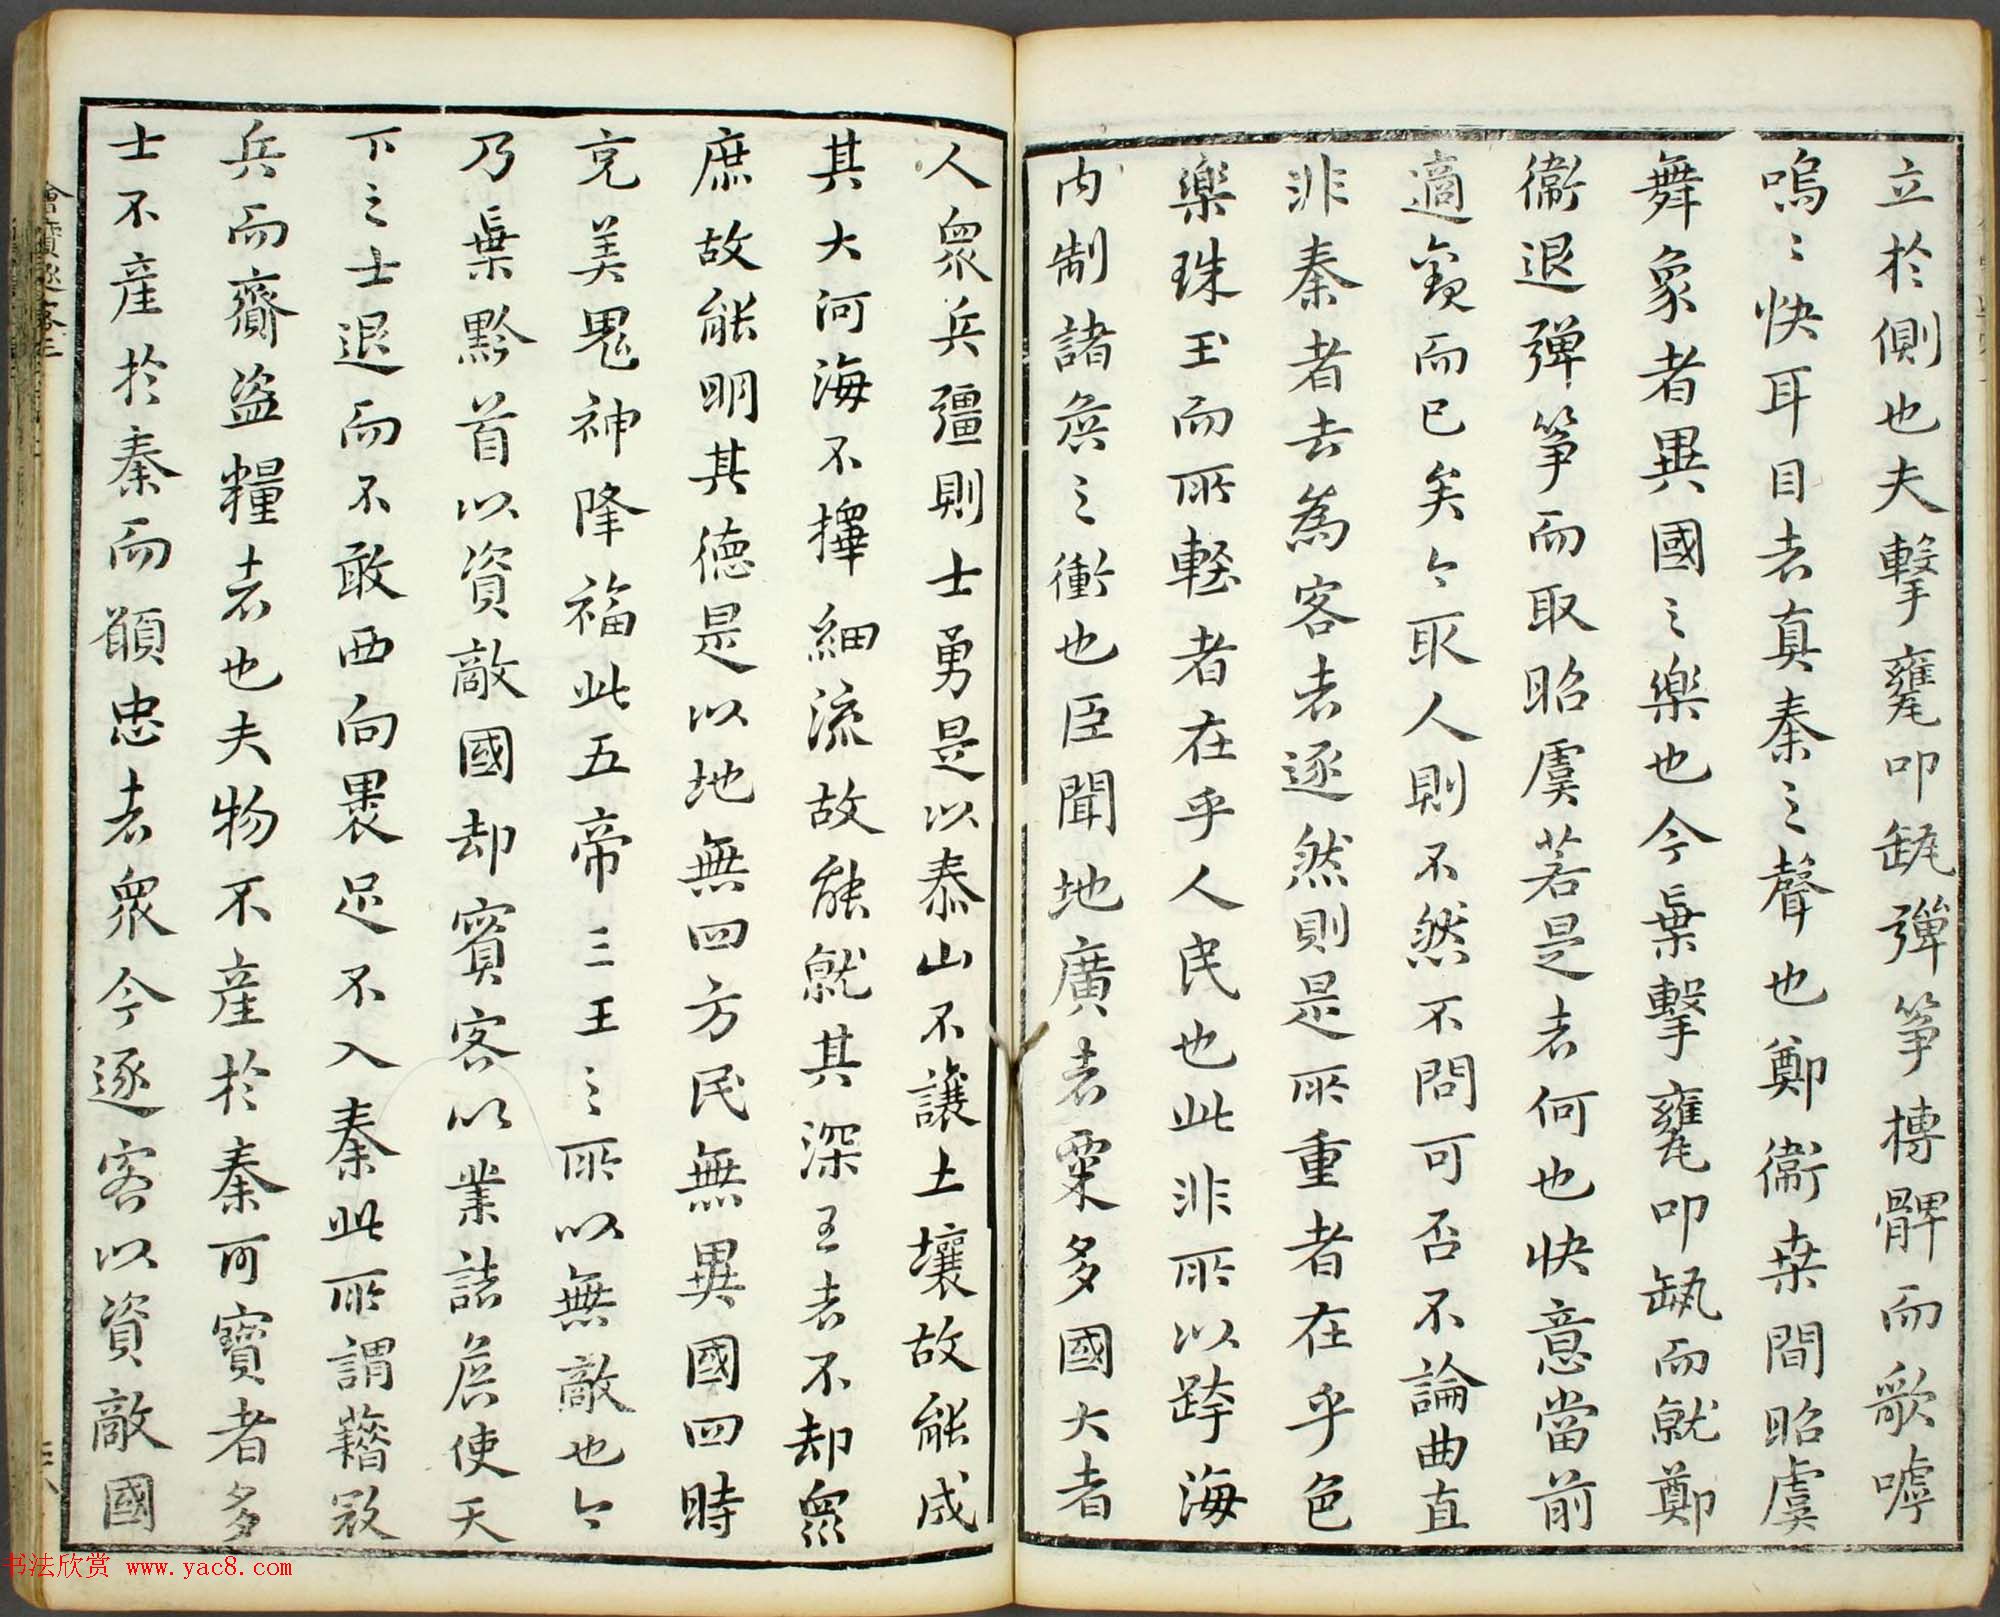 立於側也夫擊甕叩缻彈箏搏髀而歌嘑
嗚〻快耳目者真秦之聲也鄭衞桒間昭虞
舞象者異國之樂也今棄擊甕叩缻而就鄭
衞退彈箏而取昭虞若是者何也快意當前
適觀而已矣今取人則不然不問可否不論曲直
非秦者去為客者逐然則是所重者在乎色
樂珠玉而所輕者在乎人民也此非所以跨海
内制諸矦之衝也臣聞地廣者粟多國大者
人衆兵彊則士勇是以泰山不讓土壤故能成
其大河海不擇細流故能就其深王者不却衆
庶故能明其德是以地無四方民無異國四時
充美鬼神降福此五帝三王之所以無敵也今
乃棄黔首以資敵國却賓客以業諸矦使天
下之士退而不敢西向裹足不入秦此所謂藉寇
兵而齎盜糧者也夫物不產於秦可寶者多
士不產於秦而願忠者衆今逐客以資敵國
书法欣赏 www.yac8.com